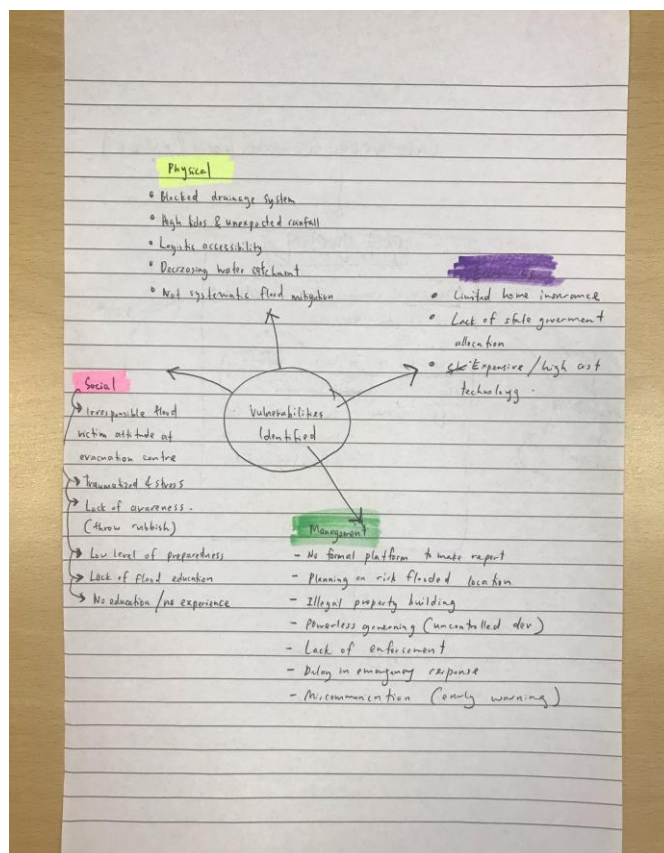 Physical
• Blocked drainage system
• High tides & unexpected rainfall
• Logistic accessibility
• Decreasing water catchment
• Not systematic flood mitigation
• Limited home insurance
• Lack of state goverment
allocation
• Expensive / high cost
technology.
Social
→ Irresponsible flood
victim attitude at
evacuation centre
→ Traumatized & stress
→ Lack of awareness.
(throw rubbish)
→ Low level of preparedness
→ Lack of flood education
→ No education / no experience
Vulnerabilities
Identified
Management
- No formal platform to make report
- Planning on risk flooded location
- Illegal property building
- Powerless governing (uncontrolled dev)
- Lack of enforcement
- Delay in emergency response
- Miscommunication (early warning)